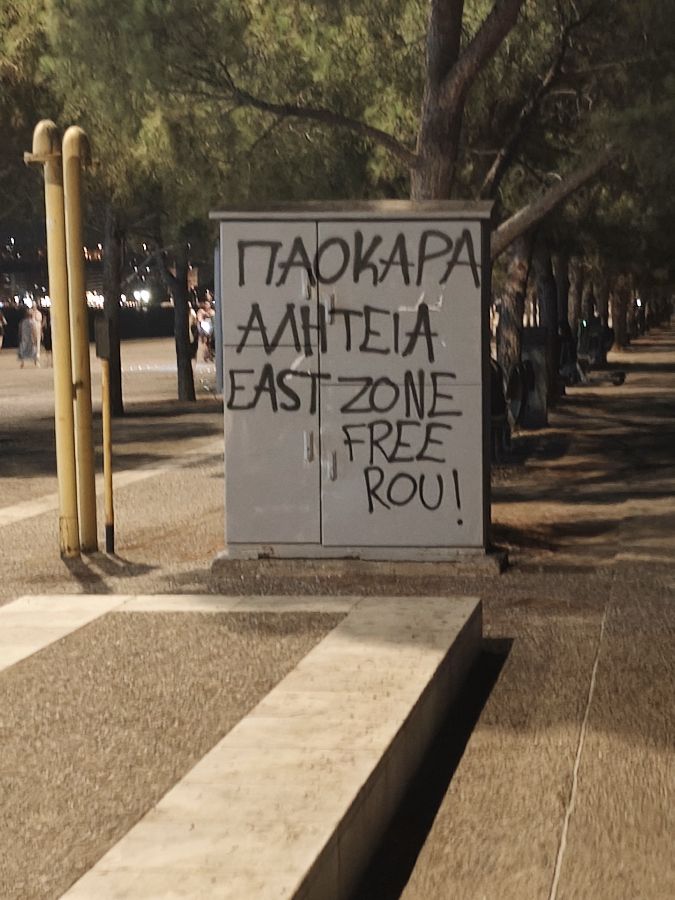 ΠΑΟΚΑΡΑ
ΑΛΗΤΕΙΑ
EAST ZONE
FREE
ROU!